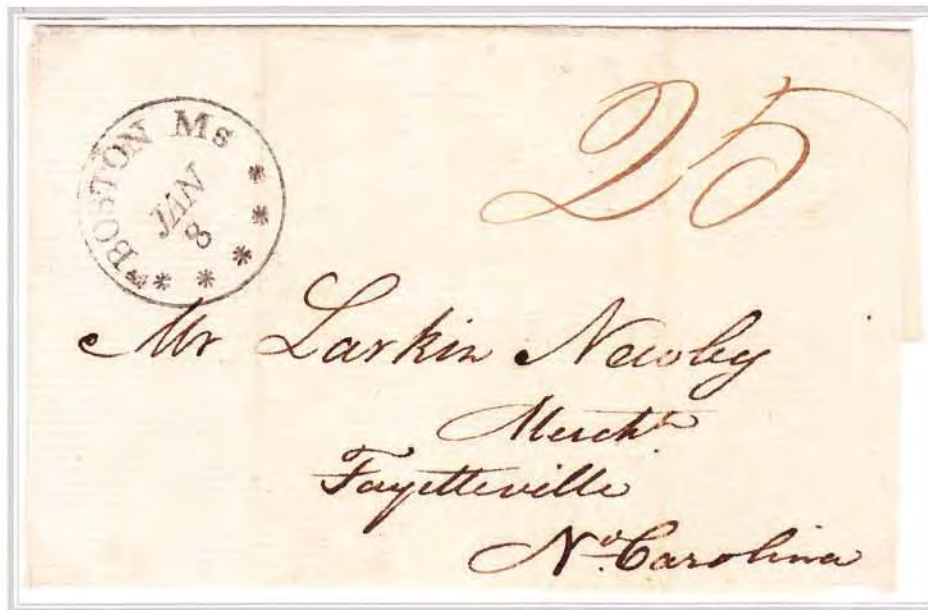 BOSTON Ms
JAN
8
25
Mr Larkin Newby
Mercht
Fayetteville
No. Carolina